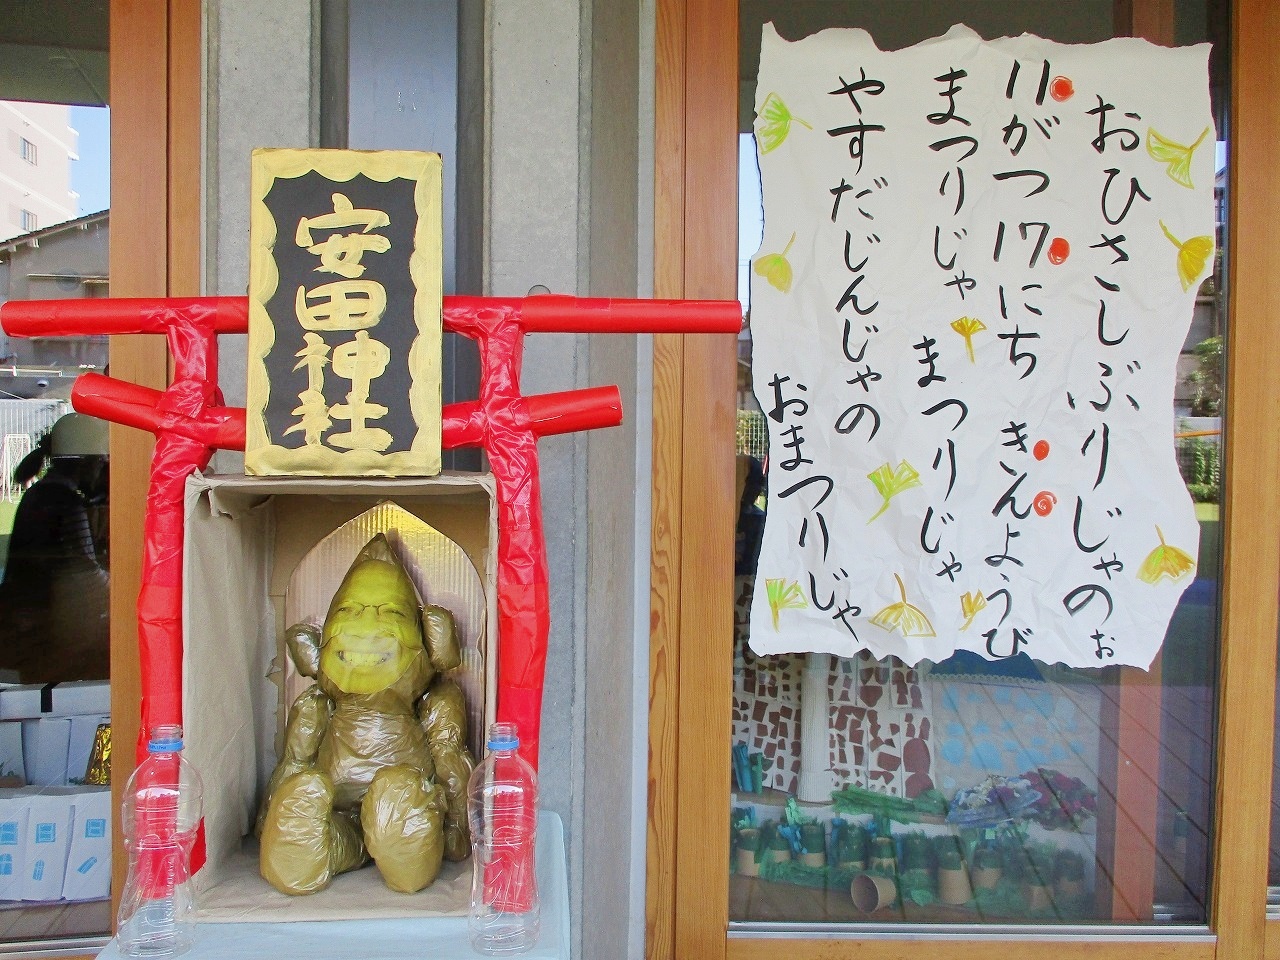 安田神社
おひさしぶりじゃのぉ
11がつ17にち きんようび
まつりじゃ まつりじゃ
やすだじんじゃの
おまつりじゃ